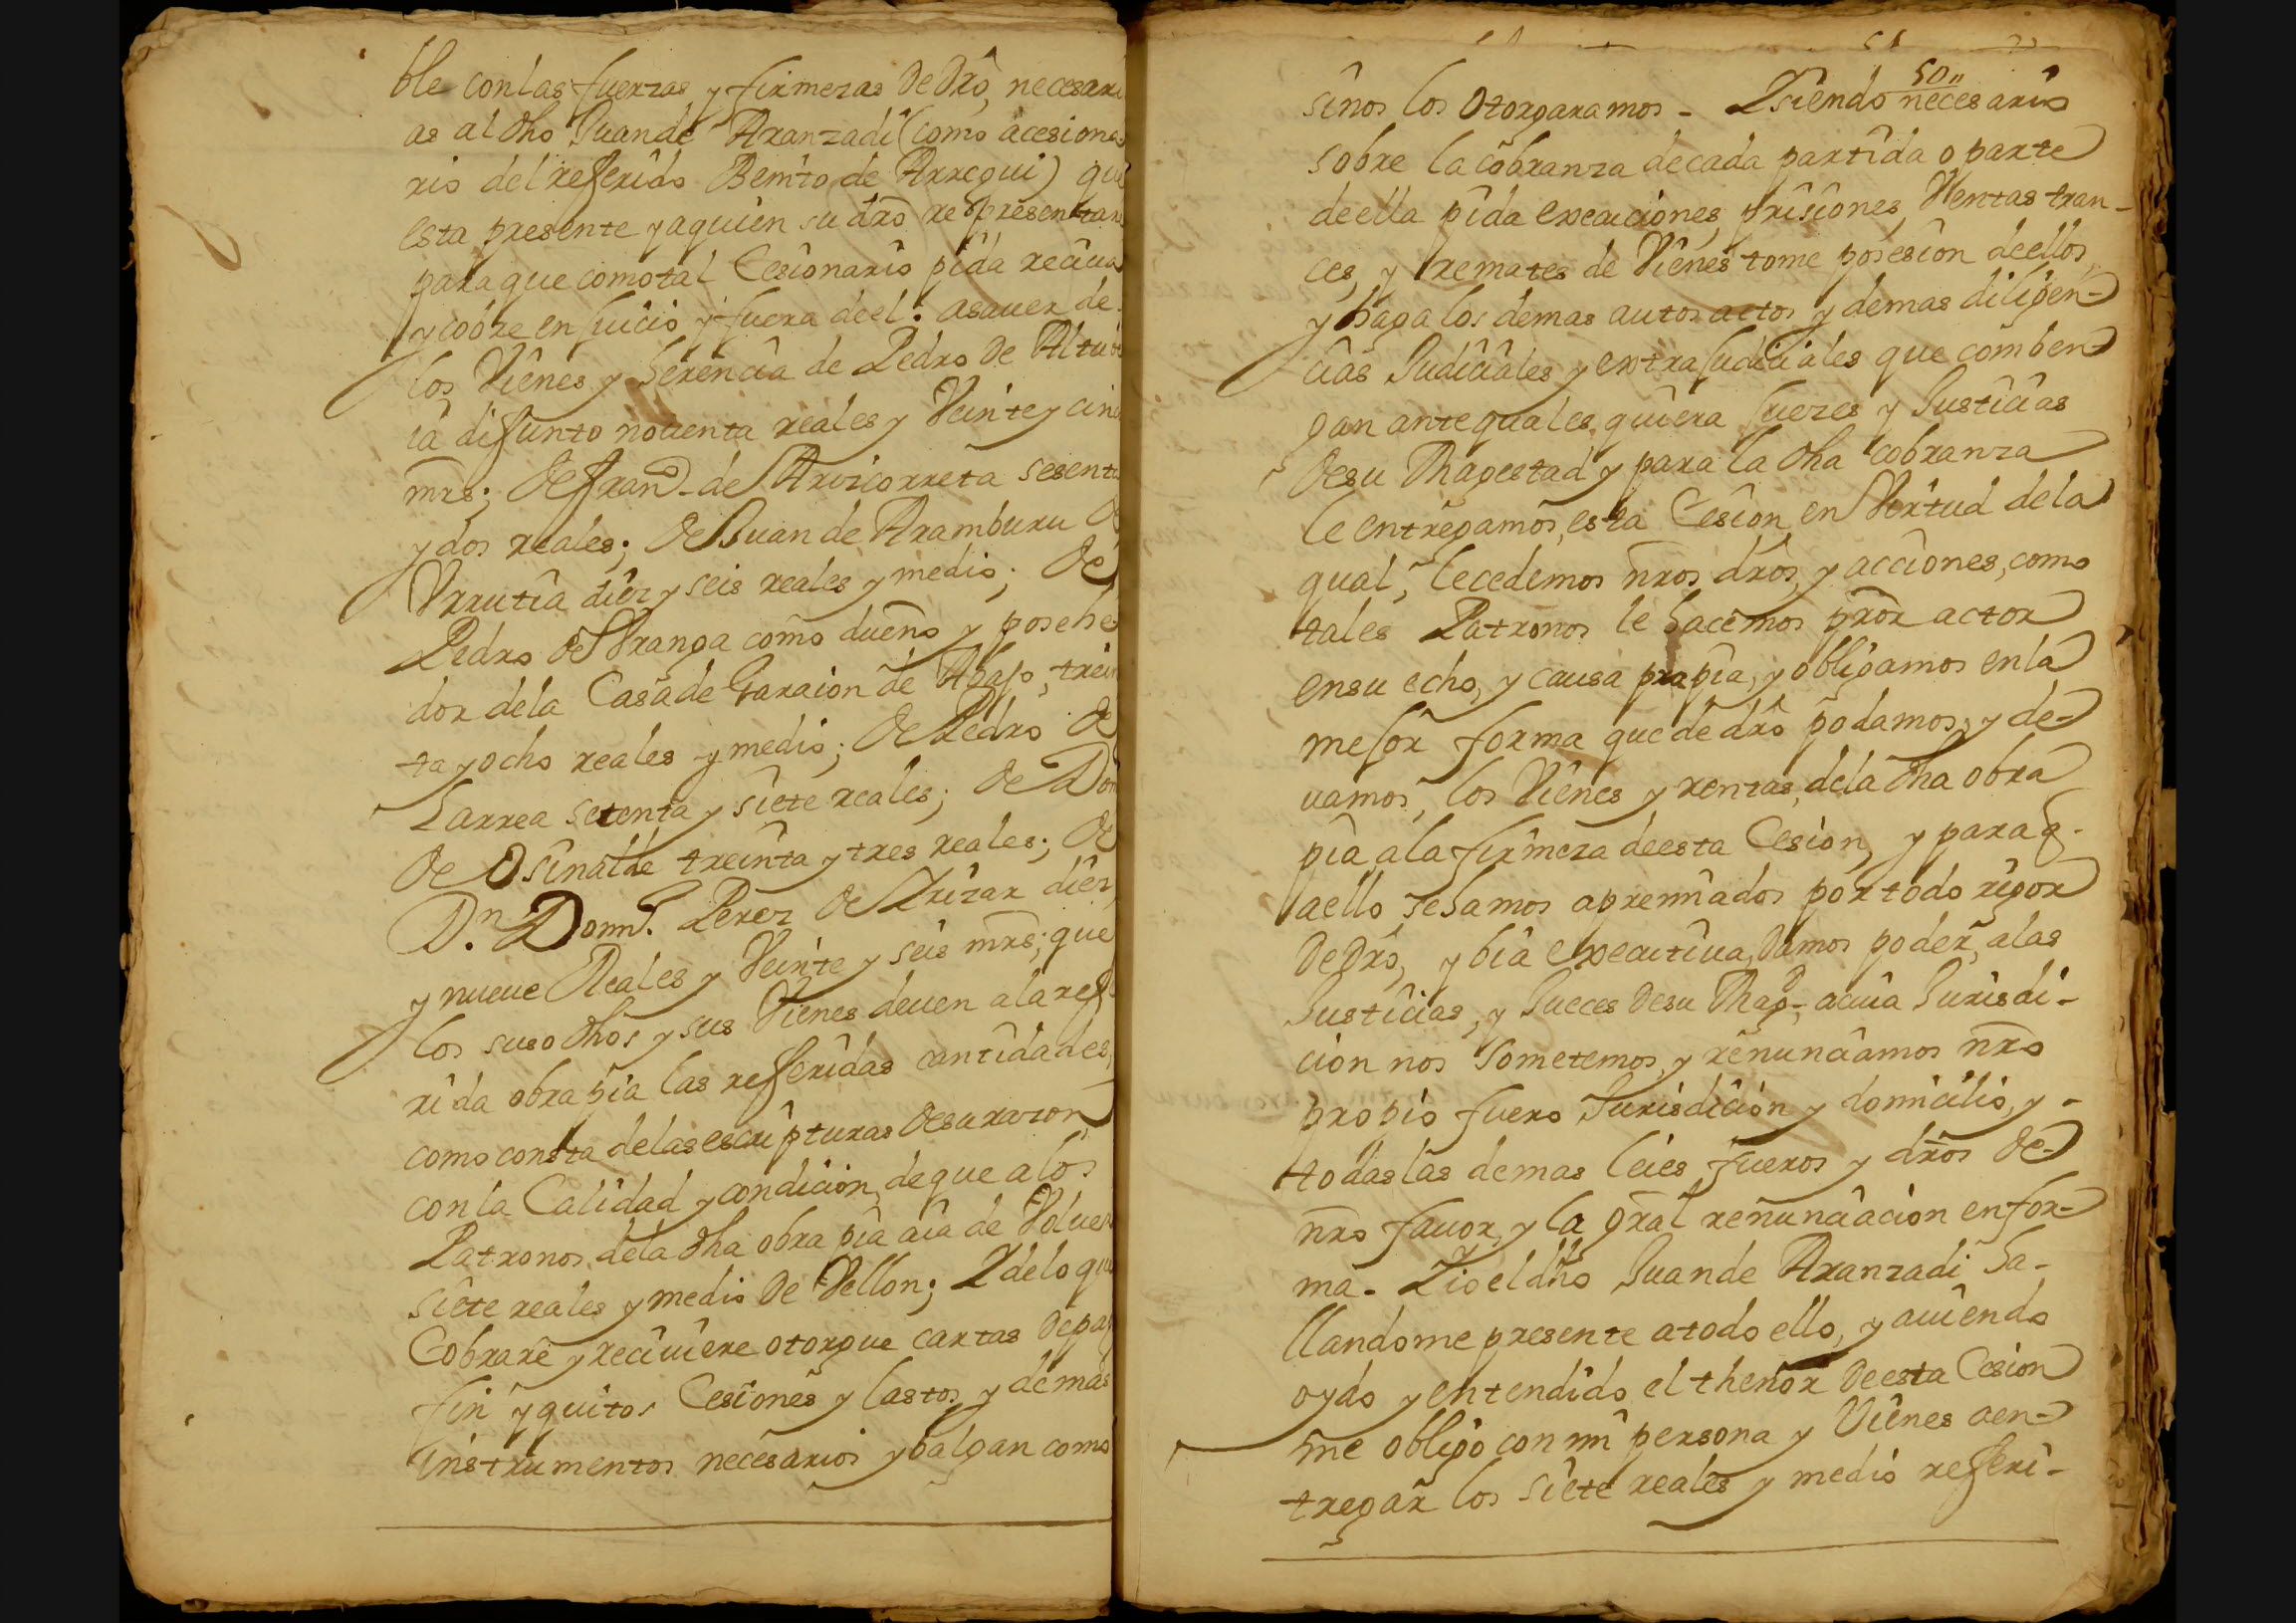 ble con las fuerzas y firmezas de dro, necesari
as al dho Juan de Aranzadi (como acesiona
rio del referido Benito de Arregui) que
esta presente y a quien su dro representare
para que como tal Cesionario pida reciua
y cobre en Juicio y fuera de el: asauer de
los Vienes y herencia de Pedro de Altuv
ia difunto nouenta reales y Veinte y cin
mrs; de Franco de Arvicorreta sesenta
y dos reales; de Juan de Aramburu de
Vrrutia diez y seis reales y medio; de
Pedro de Vranga como dueño y posehe
dor de la Casa de Garaion de Abajo, trein
ta y ocho reales y medio; de Pedro de
Larrea setenta y siete reales; de Dom
de Osinalde treinta y tres reales; de
Dn. Domi. Perez de Yrizar diez
y nueue Reales y Veinte y seis mrs; que
los suso dhos y sus Vienes deuen a la refe
rida obra pia las referidas cantidades,
como consta de las escripturas de su razon,
con la Calidad y condicion, de que a los
Patronos de la dha obra pia aia de Voluer
siete reales y medio de Vellon; Y de lo que
Cobrare y reciuiere otorgue cartas de pag
fin y quitos Cesiones y lastos, y demas
instrumentos necesarios y balgan como
50,,
si nos los otorgaramos - Y siendo necesario
sobre la cobranza de cada partida o parte
de ella pida execuciones, prisiones, Ventas tran-
ces, y remates de Vienes tome posesion de ellos,
y haga los demas autos actos y demas diligen-
cias Judiciales y extrajudiciales que comben-
gan ante quales quiera Juezes y Justicias
de su Magestad y para la dha cobranza
le entregamos, esta Cesion, en Virtud de la
qual, le cedemos nros, dros, y acciones, como
tales Patronos le hacemos pror actor
en su echo, y causa propia, y obligamos en la
mejor forma que de dro podamos, y de-
uamos, los Vienes y rentas, de la dha obra
pia a la firmeza de esta Cesion, y para q.
a ello seamos apremiados por todo rigor
de dro, y bia executiua, damos poder, a las
Justicias, y Jueces de su Magd, a cuia Jurisdi-
cion nos sometemos, y renunciamos nro
propio fuero Jurisdicion y domicilio, y -
todas las demas leies fueros y dros de-
nro fauor, y la gral renunciacion en for-
ma - Y io el dho Juan de Aranzadi ha-
llandome presente a todo ello, y auiendo
oydo y entendido el thenor de esta Cesion
me obligo con mi persona y Vienes a en-
tregar los siete reales y medio referi-